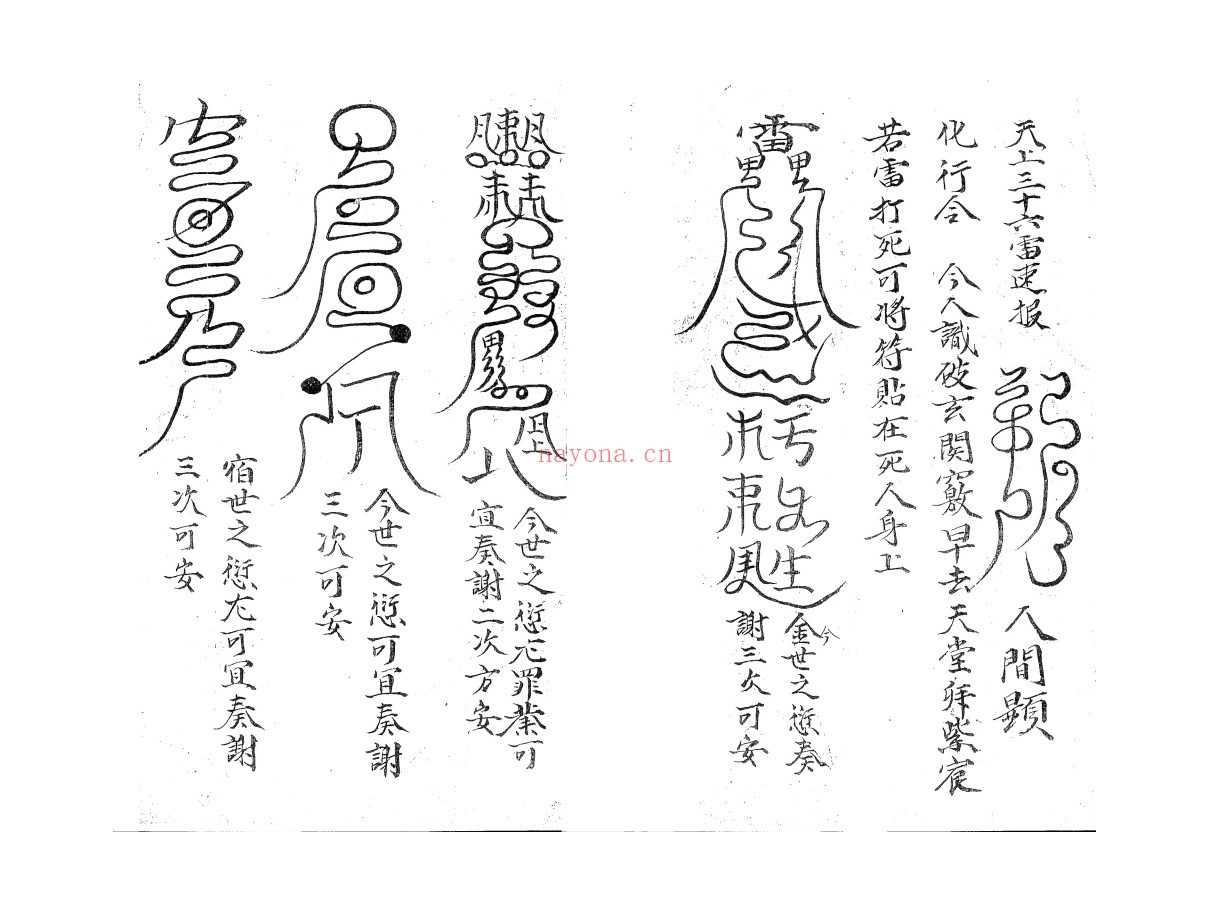 天上三十六雷速报
人間顕
化行令 今人識破玄関竅早去天堂拜紫宸
若雷打死可將符貼在死人身上
雷
金世之愆奏
今
謝三次可安
今世之愆尤罪業可
宜奏謝二次方安
今世之愆可宜奏謝
三次可安
宿世之愆尤可宜奏謝
三次可安
nayona.cn